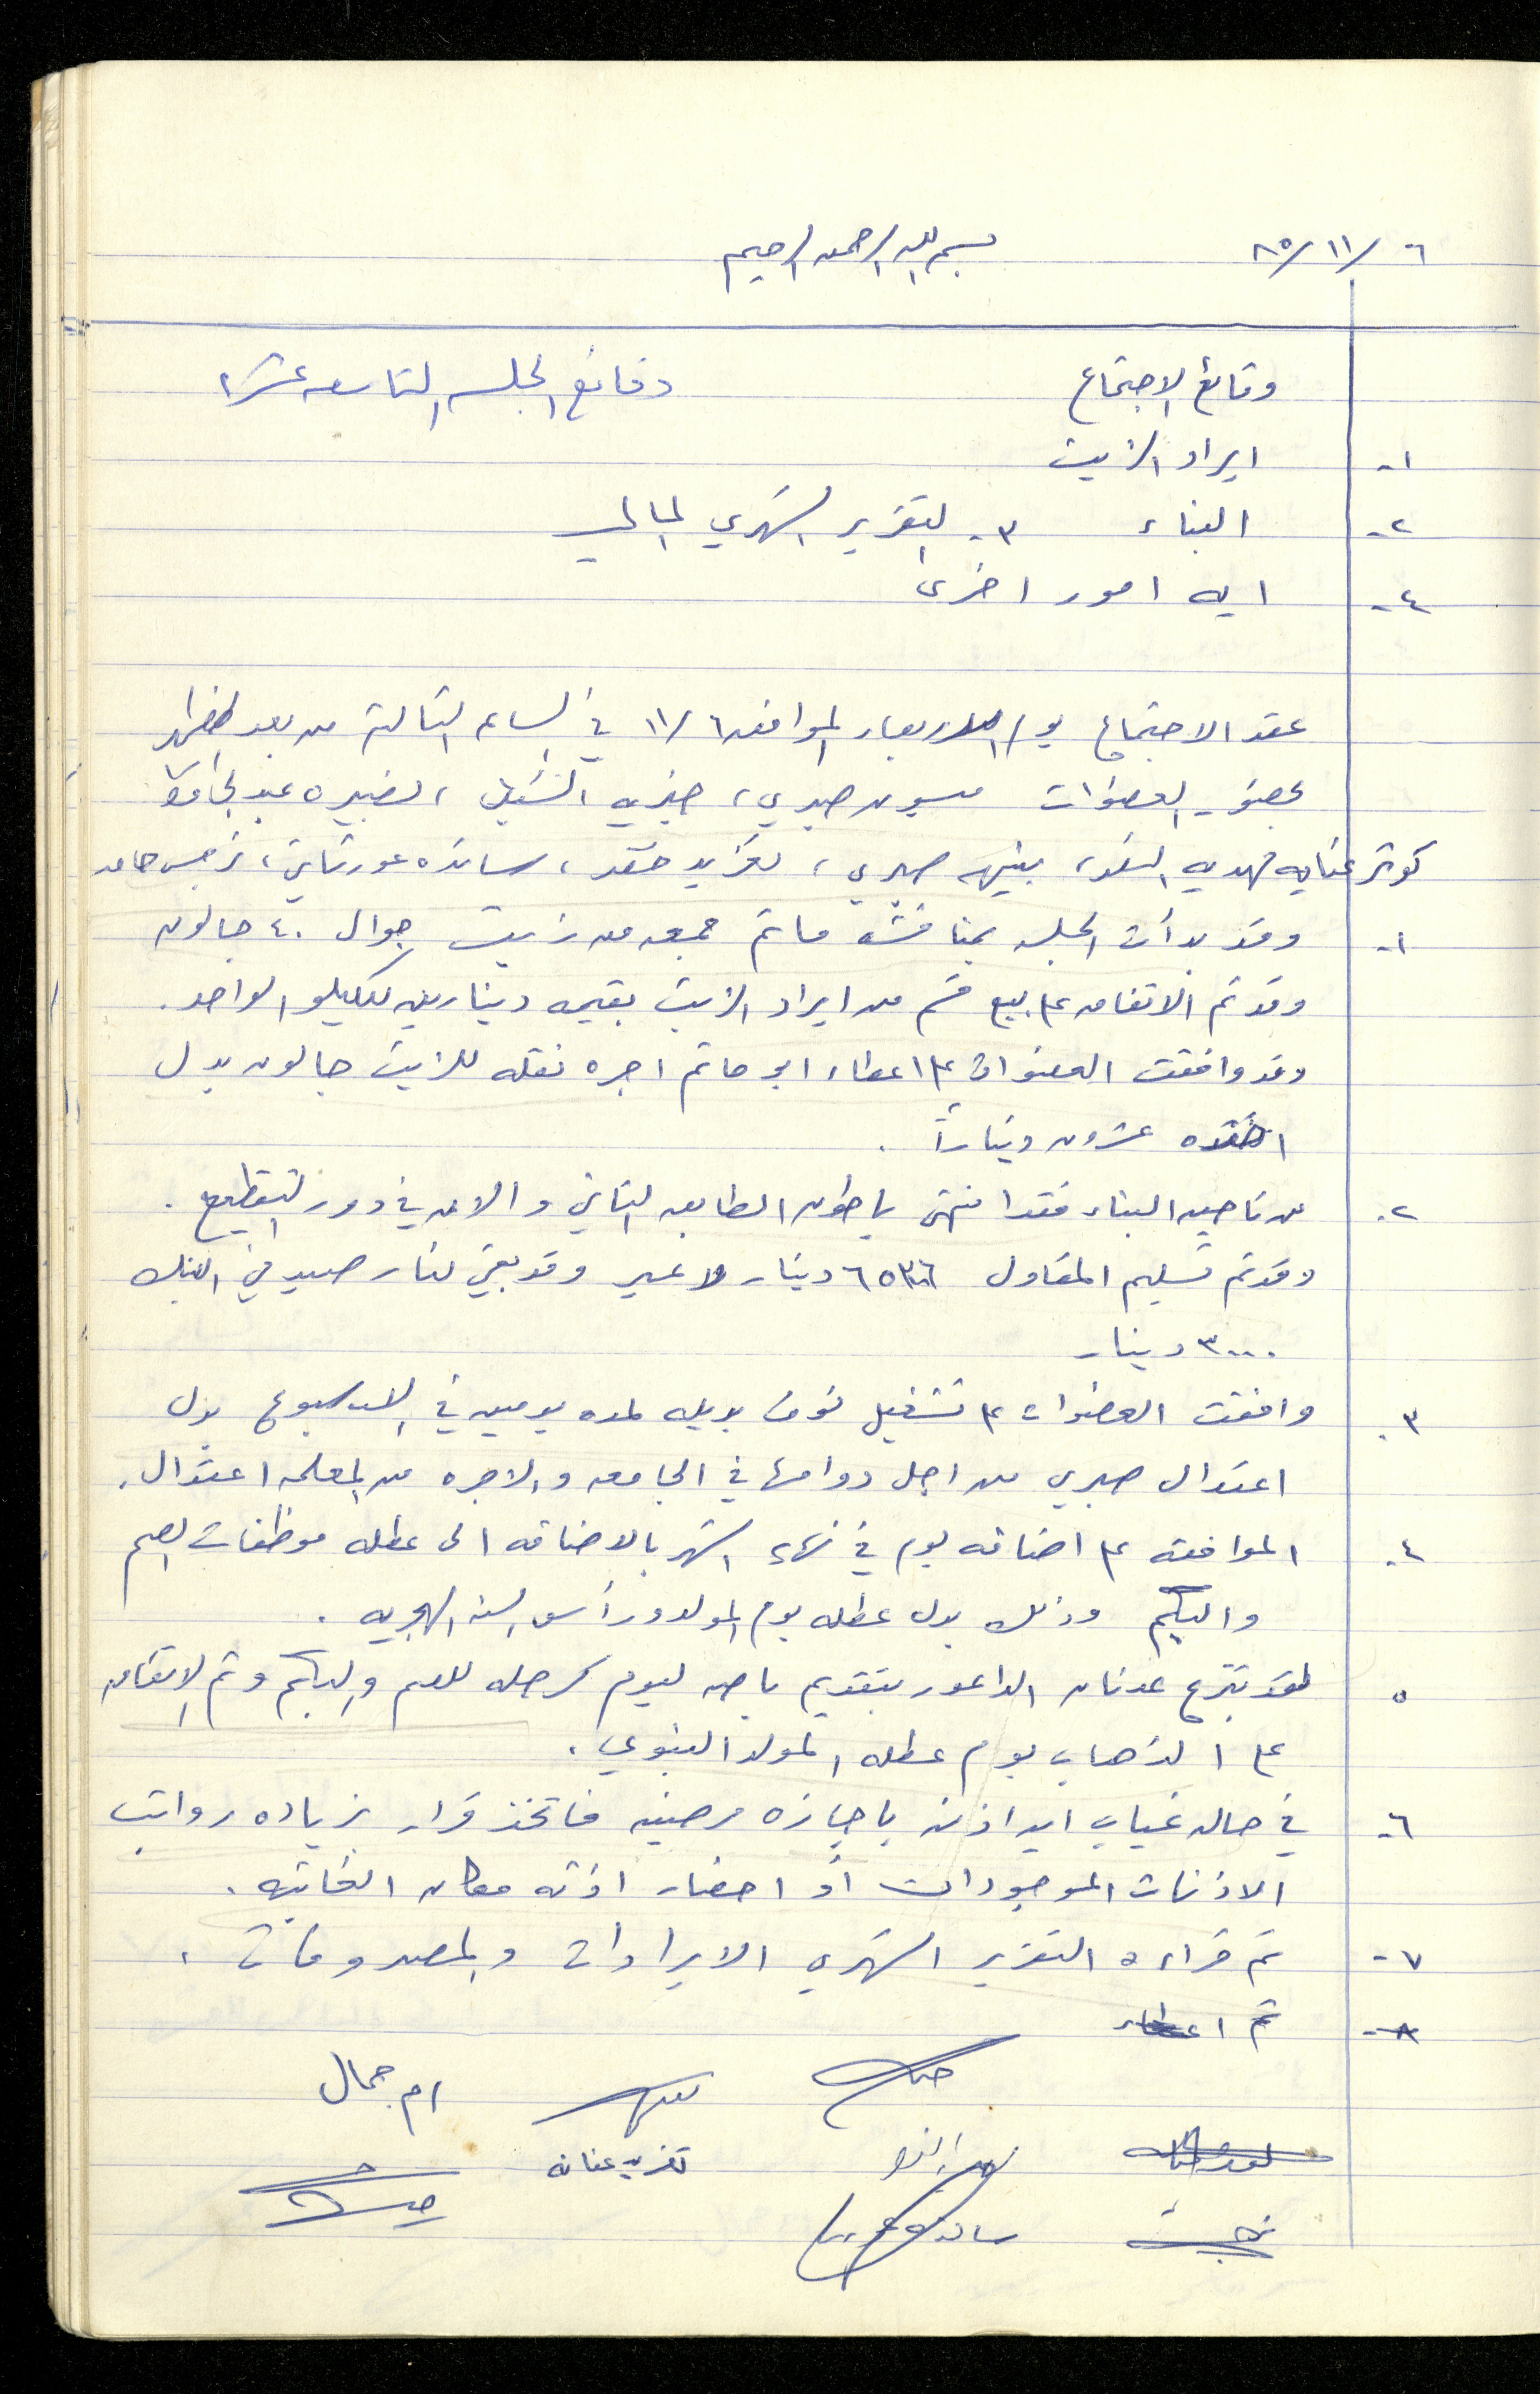 ٦ /١١/ ٨٥ بسم الله الرحمن الرحيم
وقائع الاجتماع وقائع الجلسه التاسعه عشر
١- ايراد الزيت
٢- البناء ٣- التقرير الشهري المالي
٤- ايه امور اخرى
عقد الاجتماع يوم الاربعاء الموافق ١١/٦ في الساعه الثالثة من بعد الظهر
بحضور العضوات ميسون صبري، خيريه الشبل،
كوثر عنايه مهديه بهيه صبري، تغريد سائده نرجس حامد
١- وقد بدأت الجلسه بمناقشه ما تم جمعه من زيت جوال ٤٠ جالون
وقد تم الاتفاق على بيع قسم من ايراد الزيت بقيمه دينارين للكيلو الواحد.
وقد وافقت العضوات على اعطاء ابو حاتم اجره نقله للزيت جالون بدل
عشرون ديناراً.
٢- من ناحيه البناء فقد انتهى باطون الطابق الثاني والان في دور التقطيع.
وقد تم تسليم المقاول دينار لا غير وقد بقي لنا رصيد في البنك
٣٠٠٠ دينار
٣- وافقت العضوات على تشغيل نوف بديله لمده يومين في الاسبوع بدل
اعتدال صبري من اجل دوامها في الجامعه والاجره من المعلمه اعتدال.
٤- الموافقه على اضافه يوم في نهايه الشهر بالاضافه الى عطله موظفات الصم
والبكم وذلك بدل عطله يوم المولد ورأس السنه الهجريه.
٥ لقد تبرع عدنان الداعور بتقديم باص ليوم كرحله للصم والبكم وتم الاتفاق
على الذهاب يوم عطله المولد النبوي.
٦- في حاله غياب ايه اذنه باجازه مرضيه فاتخذ قرار بزياده رواتب
الاذنات الموجودات أو احضار اذنه مكان الغائبه.
٧- تم قراءه التقرير الشهري الايرادات والمصروفات.
٨- تم اعطاء
ام جمال
تغريد عنايه